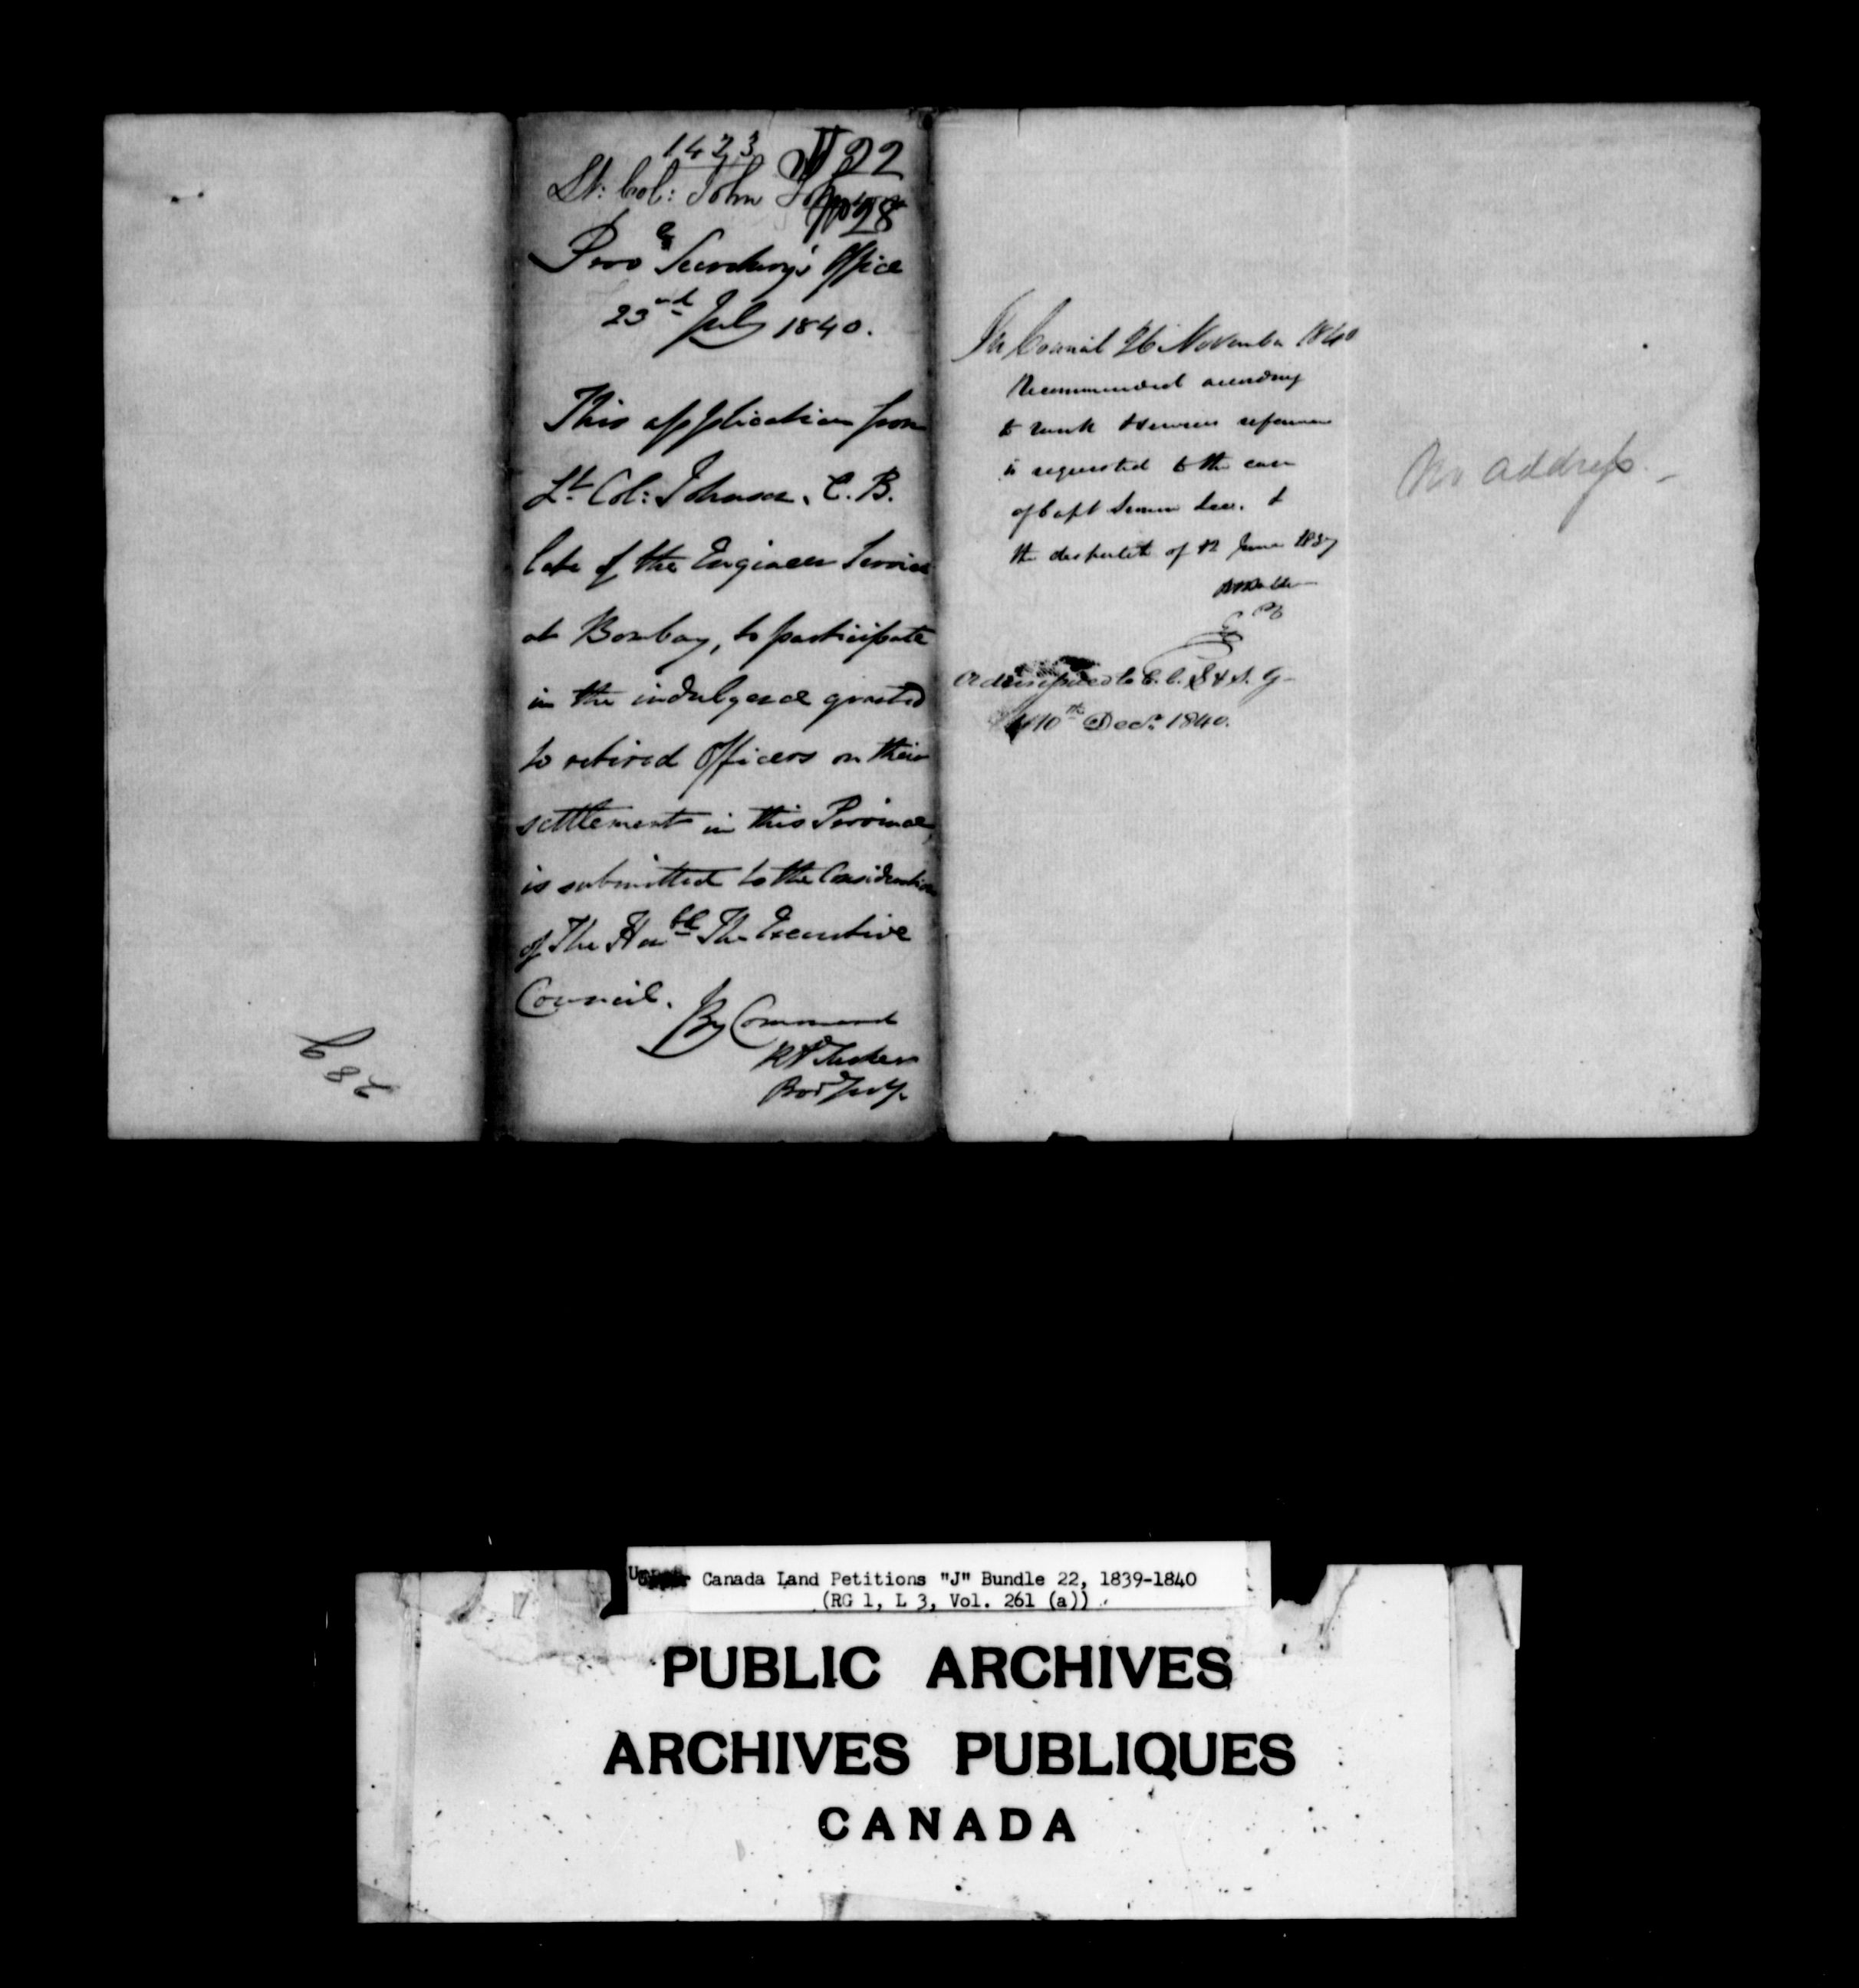 1423
J 22
Lt: Col: John Johnson
No 28
Prov. Secretary's Office
23nd July 1840.
This application from
Lt Col: Johnson, C. B.
late of the Engineer Service
at Bombay, to participate
in the indulgence granted
to retired Officers on their
settlement in this Province,
is submitted to the Consideration
of The Honble The Executive
Council.
By Command
R A Tucker
Prov Secy.
28 b
In Council 26 November 1840
Recommended according
to rank & services reference
is requested to the case
of Capt
the despatch of 12 June 1837
Order issued to C. C. L & S. G.
10th Decr. 1840.
No address. -
Upper Canada Land Petitions "J" Bundle 22, 1839-1840
(RG 1, L 3, Vol. 261 (a))
PUBLIC ARCHIVES
ARCHIVES PUBLIQUES
CANADA